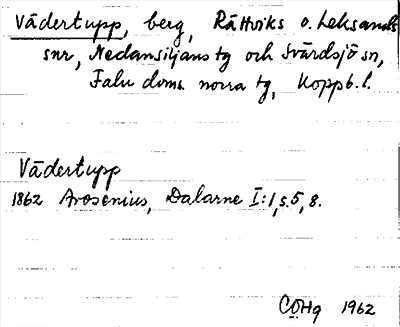 Vädertupp, berg, Rättviks o. Leksands
snr, Nedansiljans tg och Svärdsjö sn,
Falu doms. norra tg, Koppb. l.
Vädertupp
1862 Arosenius, Dalarne I:1, s. 5, 8.
COHg 1962